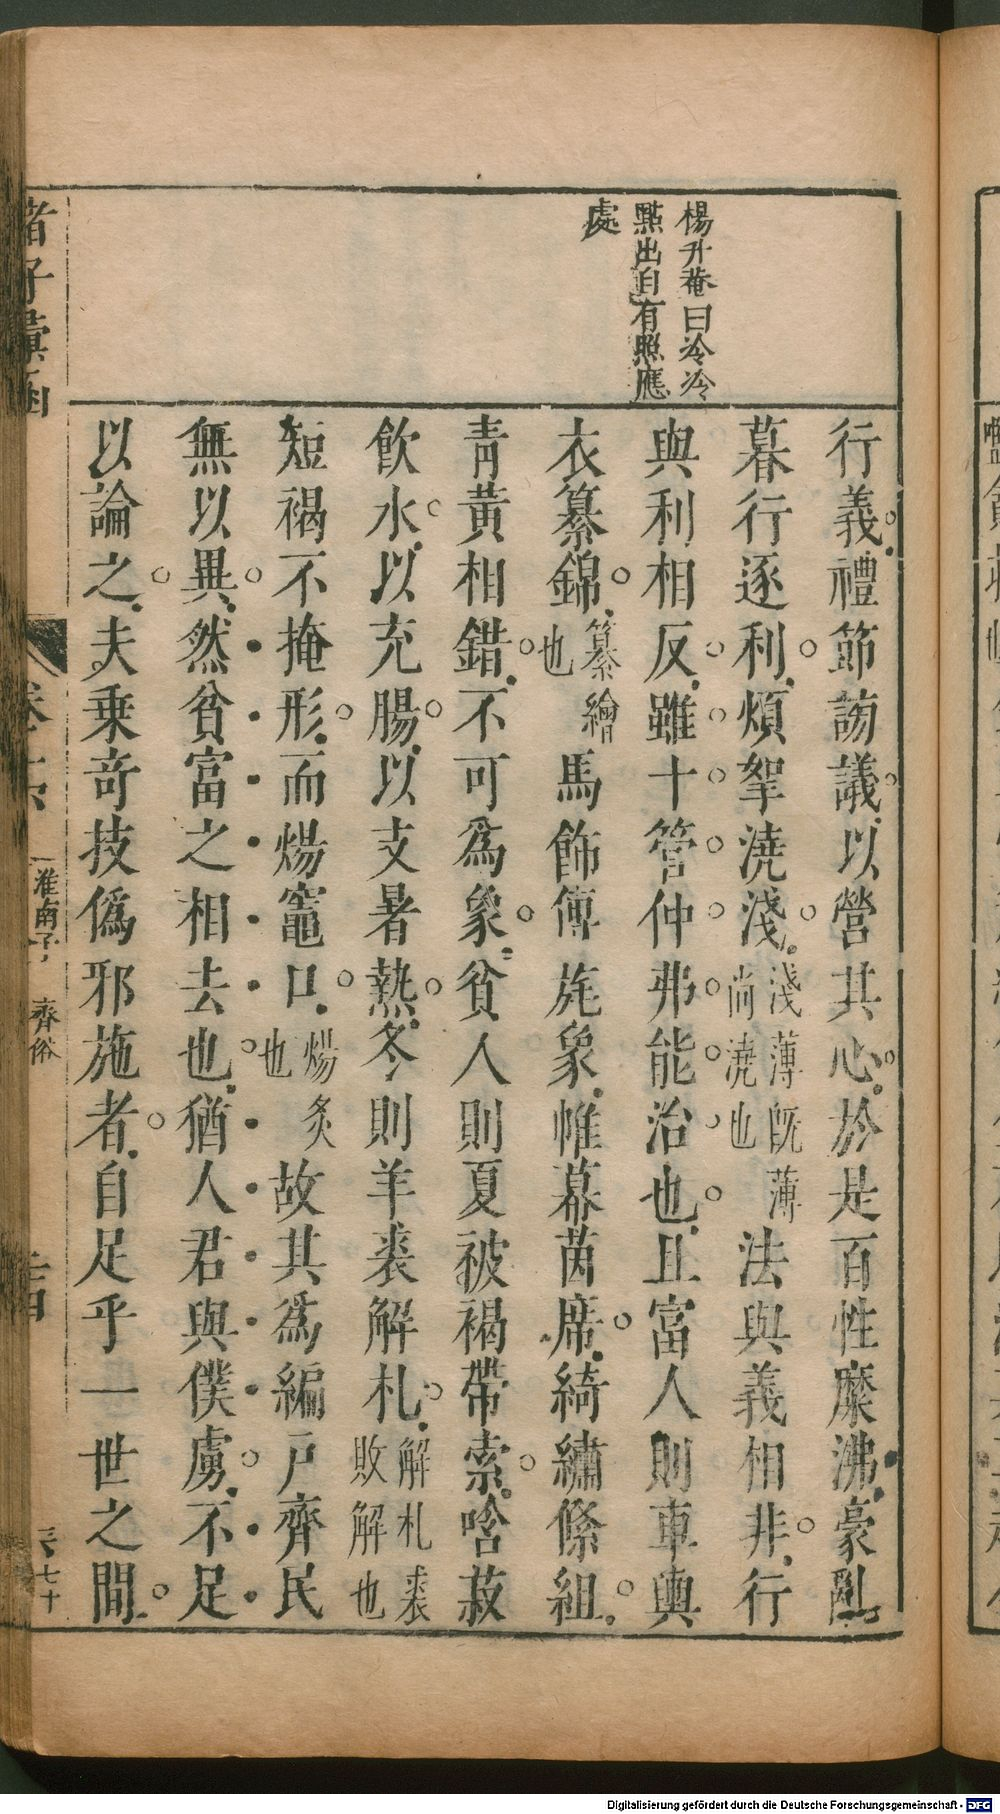 楊升菴曰泠泠
點出自有照應
處
行義禮節謗議以營其心於是百性糜沸豪亂
暮行逐利煩挐澆淺淺薄既薄尚澆也法與義相非行
與利相反雖十管仲弗能治也且富人則車輿
衣纂錦纂繪也馬飾傅旄象帷幕茵席綺繡絛組
青黃相錯不可為象貧人則夏被褐帶索唅菽
飲水以充腸以支暑熱冬則羊裘解札解札裘敗解也
短褐不掩形而煬竈口煬炙也故其為編戶齊民
無以異然貧富之相去也猶人君與僕虜不足
以論之夫乘奇技偽邪施者自足乎一世之間
諸子彙函
淮南子
齊俗
Digitalisierung gefördert durch die Deutsche Forschungsgemeinschaft - DFG